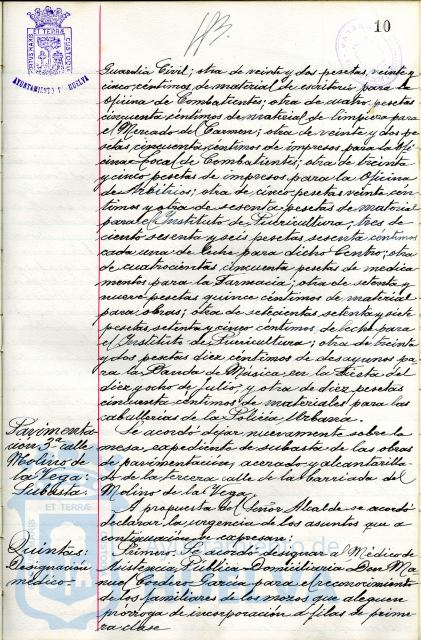 10
PORTUS MARIS ET TERRÆ CUSTODIA
AYUNTAMIENTO DE HUELVA
Guardia Civil; otra de veinte y dos pesetas, veinte y
cinco céntimos de material de escritorio para la
oficina de Combatientes; otra de cuatro pesetas
cincuenta céntimos de material de limpieza para
el Mercado del Carmen; otra de veinte y dos pe
setas, cincuenta céntimos de impresos para la Ofi
cina Local de Combatientes; otra de treinta
y cinco pesetas de impresos para la Oficina
de Arbitrios; otra de cinco pesetas veinte cén
timos y otra de sesenta pesetas de material
para el Instituto de Puericultura; tres de
ciento sesenta y seis pesetas, sesenta céntimos
cada una de leche para dicho Centro; otra
de cuatrocientas cincuenta pesetas de medica
mentos para la Farmacia; otra de setenta y
nueve pesetas quince céntimos de material
para obras; otra de setecientas setenta y siete
pesetas, setenta y cinco céntimos, de leche para
el Instituto de Puericultura; otra de treinta
y dos pesetas diez céntimos de desayunos pa
ra la Banda de Música en la Fiesta del
diez y ocho de Julio; y otra de diez pesetas
cincuenta céntimos de materiales para las
caballerías de la Policía Urbana.
Pavimenta
cion 3ª calle
Molino de
la Vega:
Subasta.
Se acordó dejar nuevamente sobre la
mesa, expediente de subasta de las obras
de pavimentacion, acerado y alcantarilla
do de la tercera calle de la barriada del
Molino de la Vega.
A propuesta del Señor Alcalde se acordó
declarar la urgencia de los asuntos que a
continuacion se expresan:
Quintas:
Designación
médico.
Primero. Se acordó designar al Médico de
Asistencia Pública Domiciliaria Don Ma
nuel Cordero García para el reconocimiento
de los familiares de los mozos que aleguen
prórroga de incorporación a filas de prime
ra clase